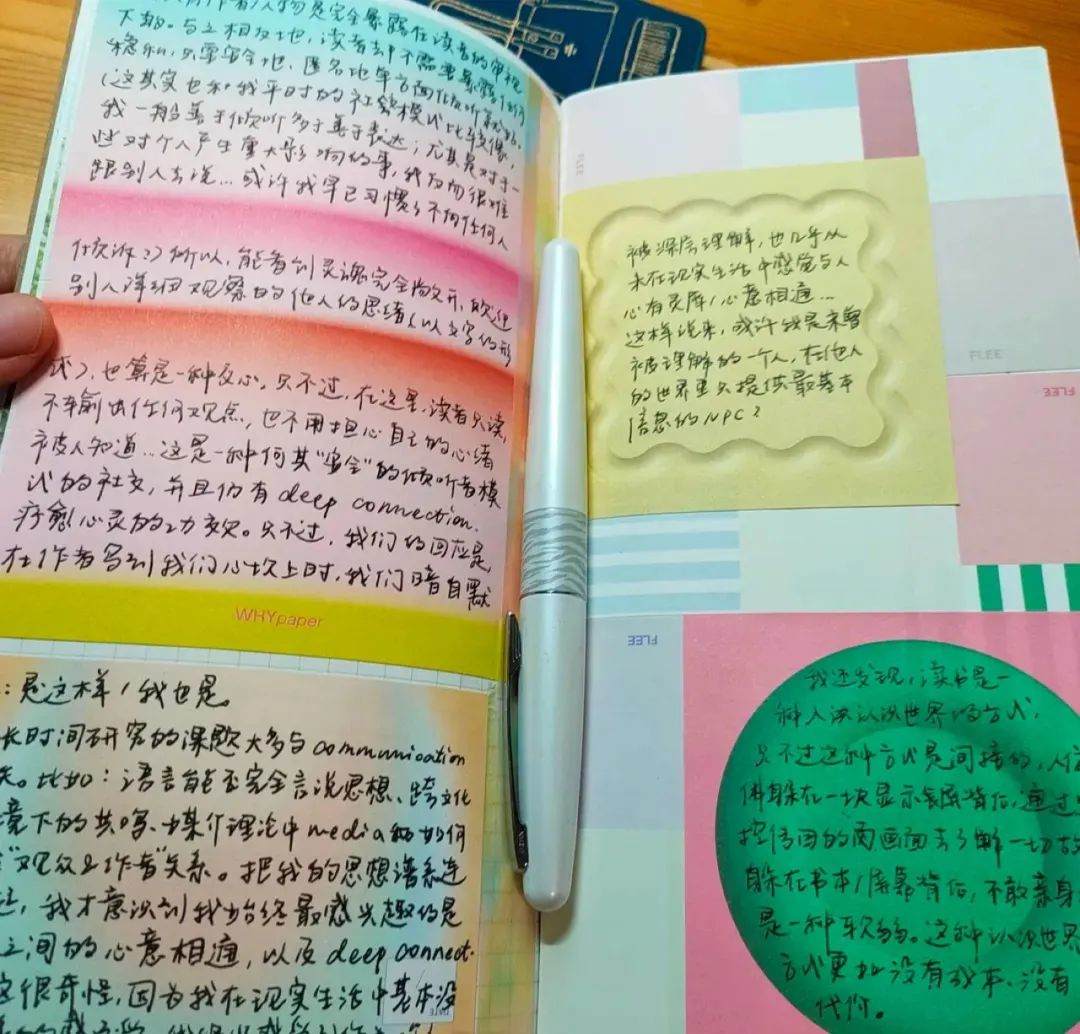 作者/人物是完全暴露在读者的审视
下的。与之相反地，读者却不需要暴露任何
稳私，只需安全地、匿名地单方面倾听就好。
（这其实也和我平时的社交模式比较像，
我一般善于倾听多于善于表达；尤其是对于一
些对个人产生重大影响的事，我反而很难
跟别人去说...或许我早已习惯了不向任何人
倾诉？）所以，能看到灵魂完全敞开，欢迎
别人详细观察的他人的思绪（以文字的形
式），也算是一种交心。只不过，在这里，读者只读，
不输出任何观点，也不用担心自己的心绪
被人知道...这是一种何其"安全"的倾听者模
式的社交，并且仍有deep connection.
疗愈心灵的功效。只不过，我们的回应是，
在作者写到我们心坎上时，我们暗自默
WHYpaper
：是这样/我也是。
长时间研究的课题大多与communication
。比如：语言能否完全言说思想、跨文化
境下的共鸣、媒介理论中media如何
"观众与作者"关系。把我的思想谱系连
，我才意识到我始终最感兴趣的是
之间的心意相通，以及deep connect.
这很奇怪，因为我在现实生活中基本没
DATE
FLEE
被深层理解，也几乎从
未在现实生活中感觉与人
心有灵犀/心意相通...
这样说来，或许我是未曾
被理解的一个人，在他人
的世界里只提供最基本
信息的NPC？
FLEE
FLEE
FLEE
我还发现，读书是一
种人类认识世界的方式，
只不过这种方式是间接的，人们
佛躲在一块显示屏背后，通过
控传回的画面去了解一切故
躲在书本/屏幕背后，不敢亲身
是一种软弱。这种认识世界
方式更加没有成本、没有
代价。